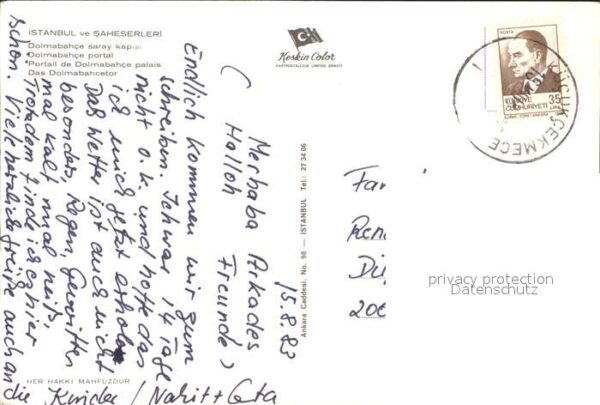 İSTANBUL ve ŞAHESERLERİ
Dolmabahçe saray kapısı
Dolmabahçe portal
Portail de Dolmabahçe palais
Das Dolmabahcetor
Keskin Color
KARTPOSTALCILIK LIMITED ŞİRKETİ
POSTA
35
LİRA
TÜRKİYE
CUMHURİYETİ
KÜÇÜKÇEKMECE
Ankara Caddesi. No. 98 — İSTANBUL Tel.: 27 34 06
15.8.83
Merhaba Arkades
( Halloh Freunde )
Endlich kommen wir zum
schreiben. Ich war 14 Tage
nicht o.k. und hoffe das
ich mich jetzt erhole
Das Wetter ist auch nicht
besonders, Regen, Gewitter
mal kalt, mal heiß,
Trotzdem finde ich es hier
schön. Viele herzliche Grüße auch an
die Kinder / Nahit +
Fam
Ren
200
privacy protection
Datenschutz
HER HAKKI MAHFUZDUR